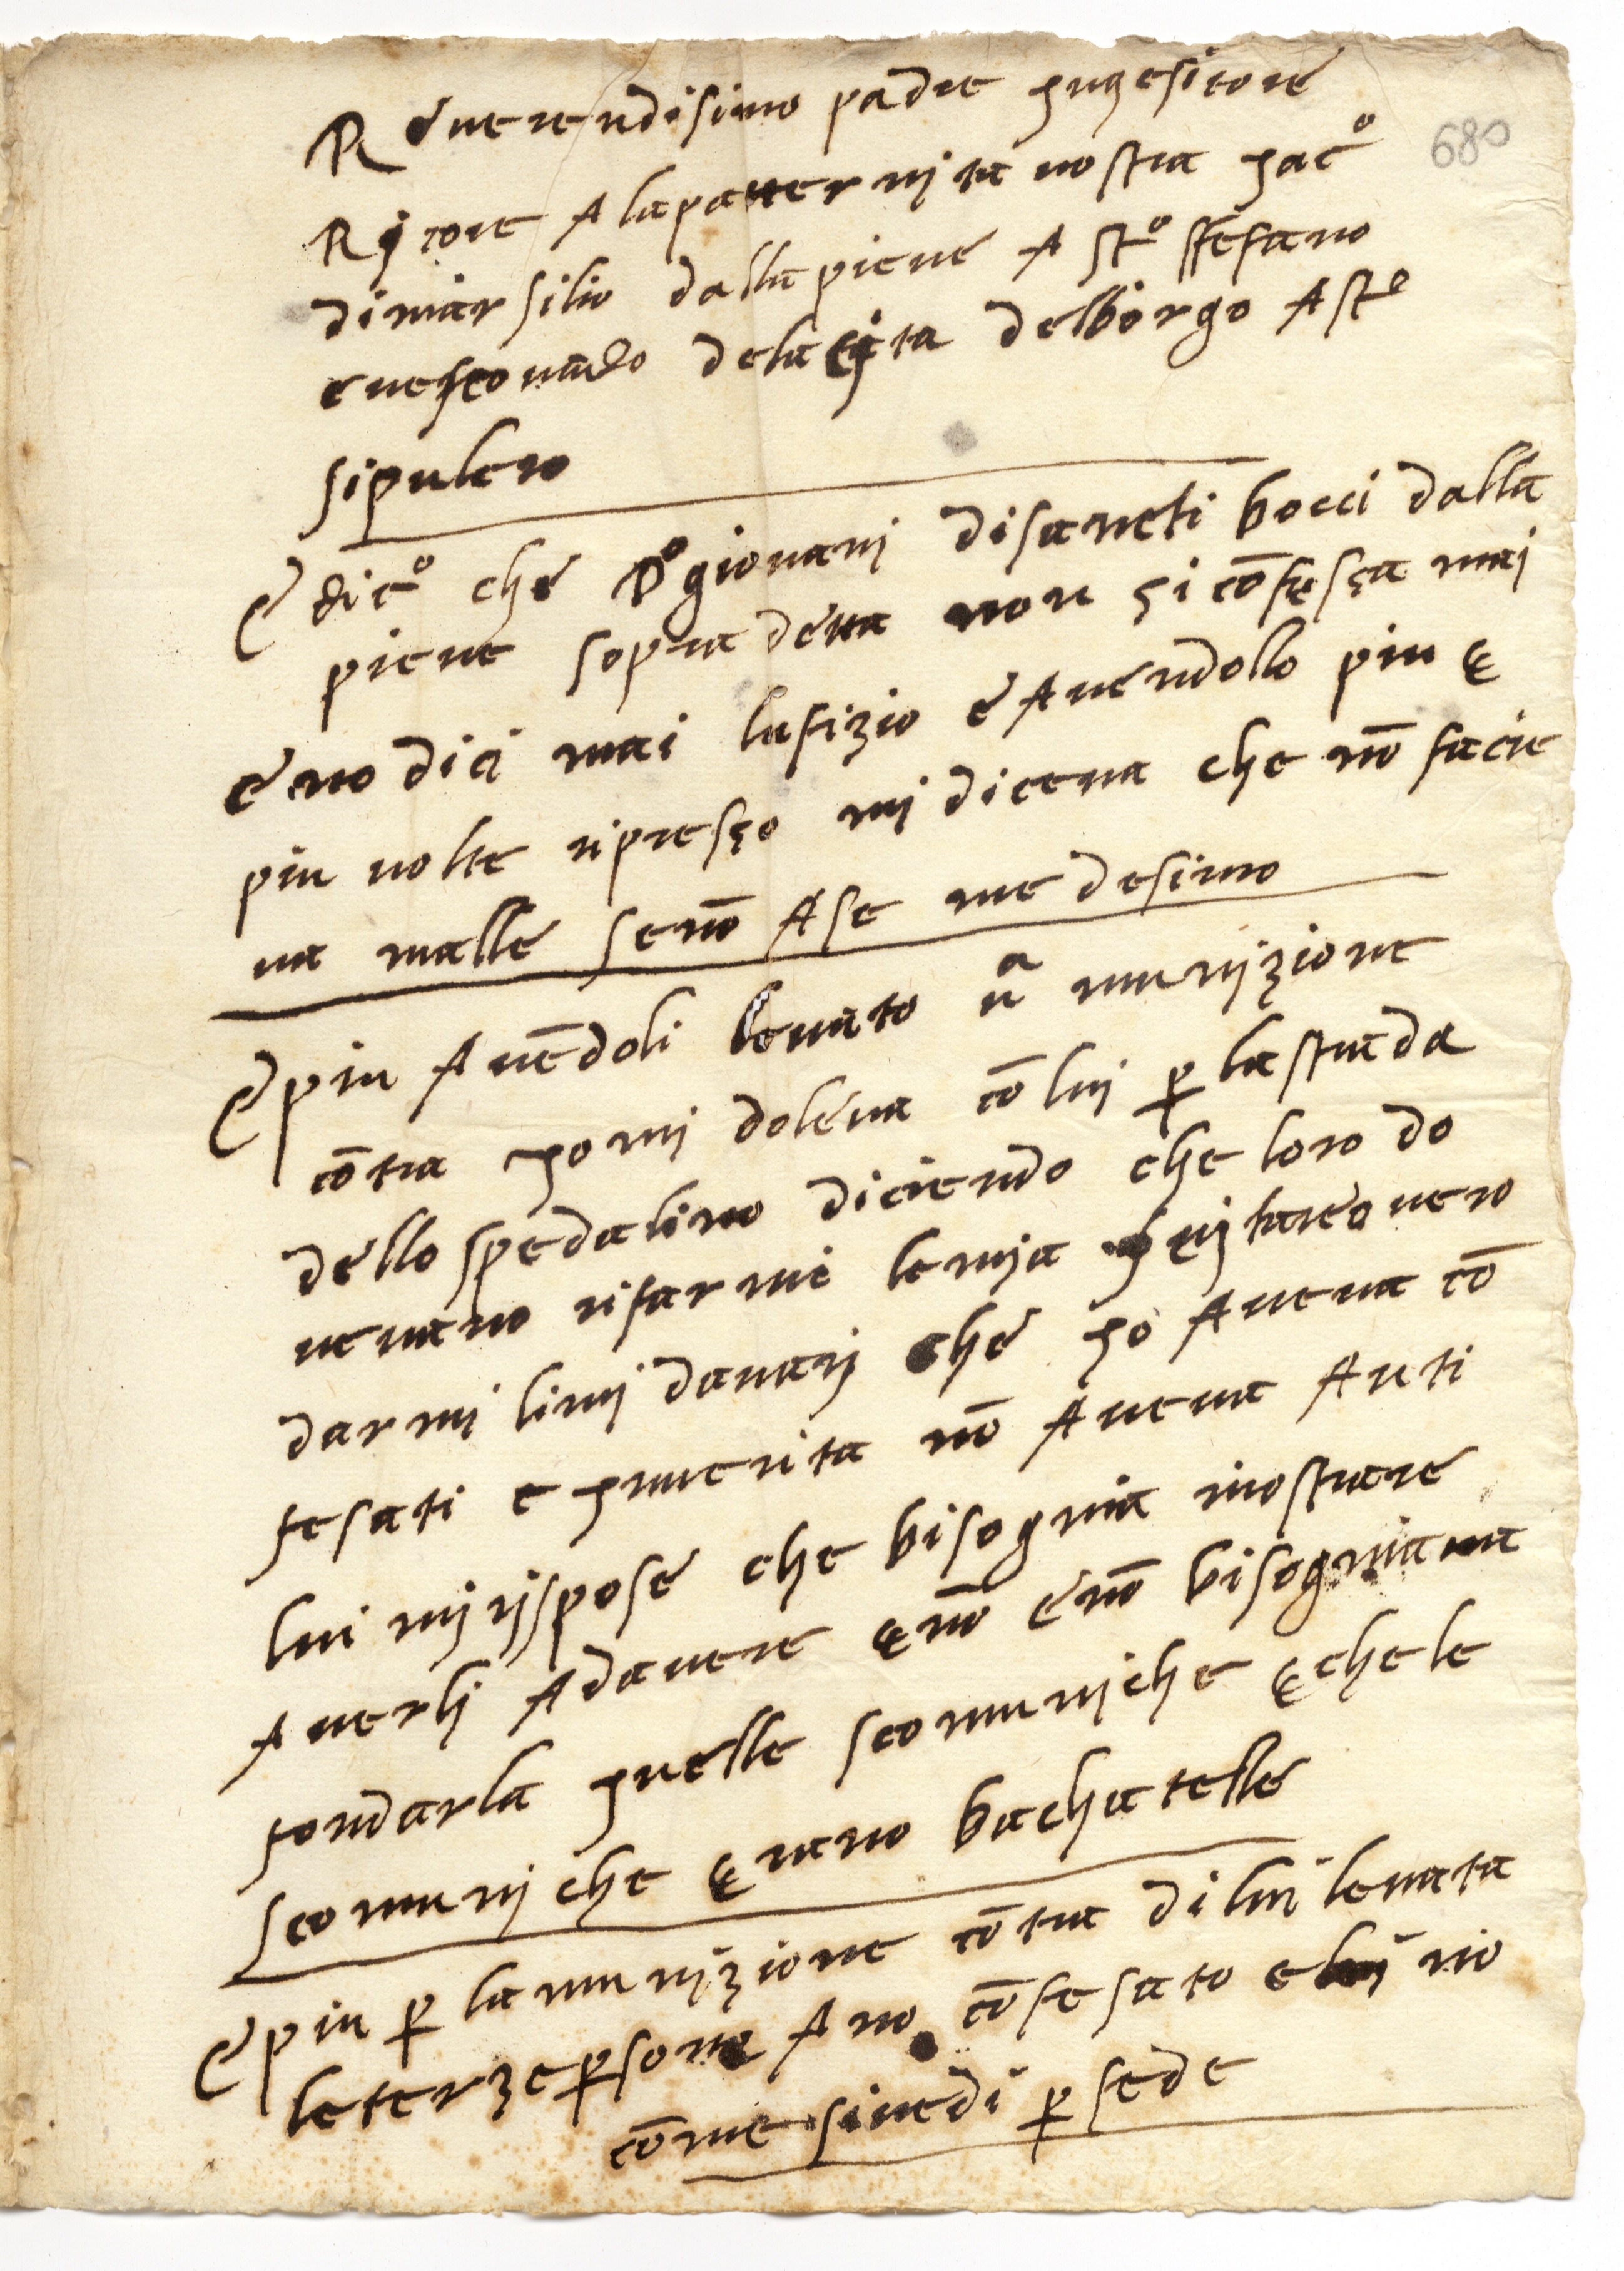 Reverendisimo padre inqesitore
680
Ricore A la paternita vostra iaco
di marsilio dalla pieve A sto stefano
e vescovado dela cita del borgo A sto
sipulcro
E dico che po giovani di santi bocci dalla
pieve sopra detta non si cōfessa mai
e no dici mai lufizio e Avendollo piu e
piu volte ripresso mi diceva che nō facie
va malle se nō A se medesimo
E piu Avēdoli levato ua munizione
cōtra io mi doleva cō lui p la strada
dello spedalino diciendo che loro do
vevano rifarmi le mia overo
darmi li mi danari che io Aveva cō
fesati e in verita nō Aveva Auti
lui mi rispose che bisognia mostrare
Averli Ad avere e nō e nō bisogniava
fondarla in elle scomuniche e che le
scomuniche erano bachatelle
E piu p la munizione cōtra di lui levata
le terze psone Ano cōfesato e lui no
cōme si vedi p fede